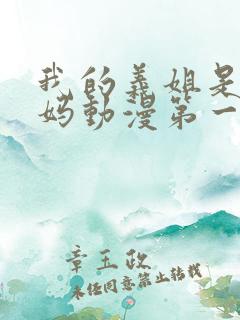 我的義姐是
妈動漫第一
章五政
未任同意禁止转载